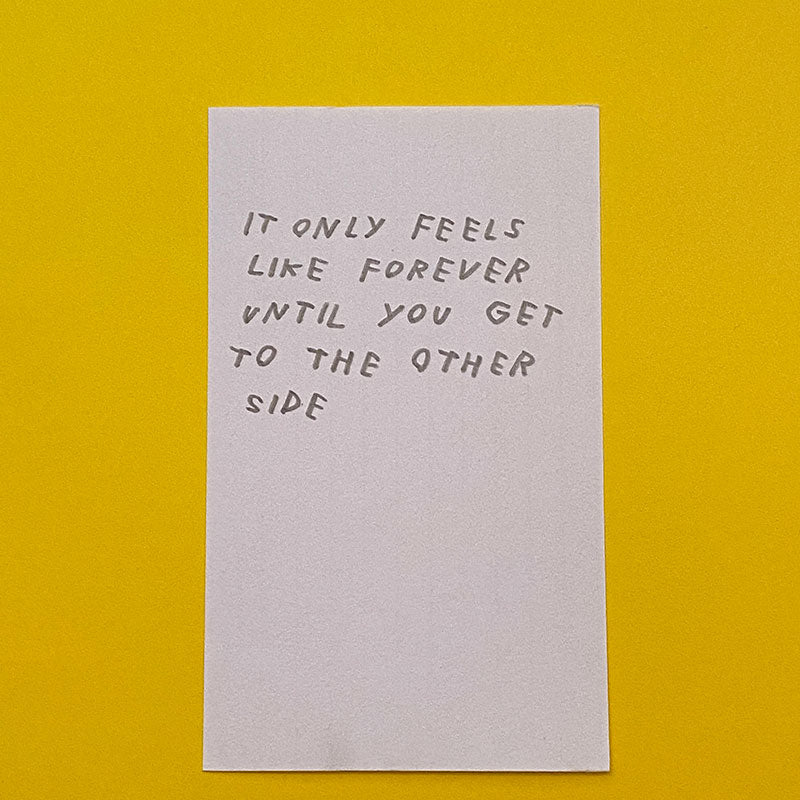 IT ONLY FEELS
LIKE FOREVER
UNTIL YOU GET
TO THE OTHER
SIDE